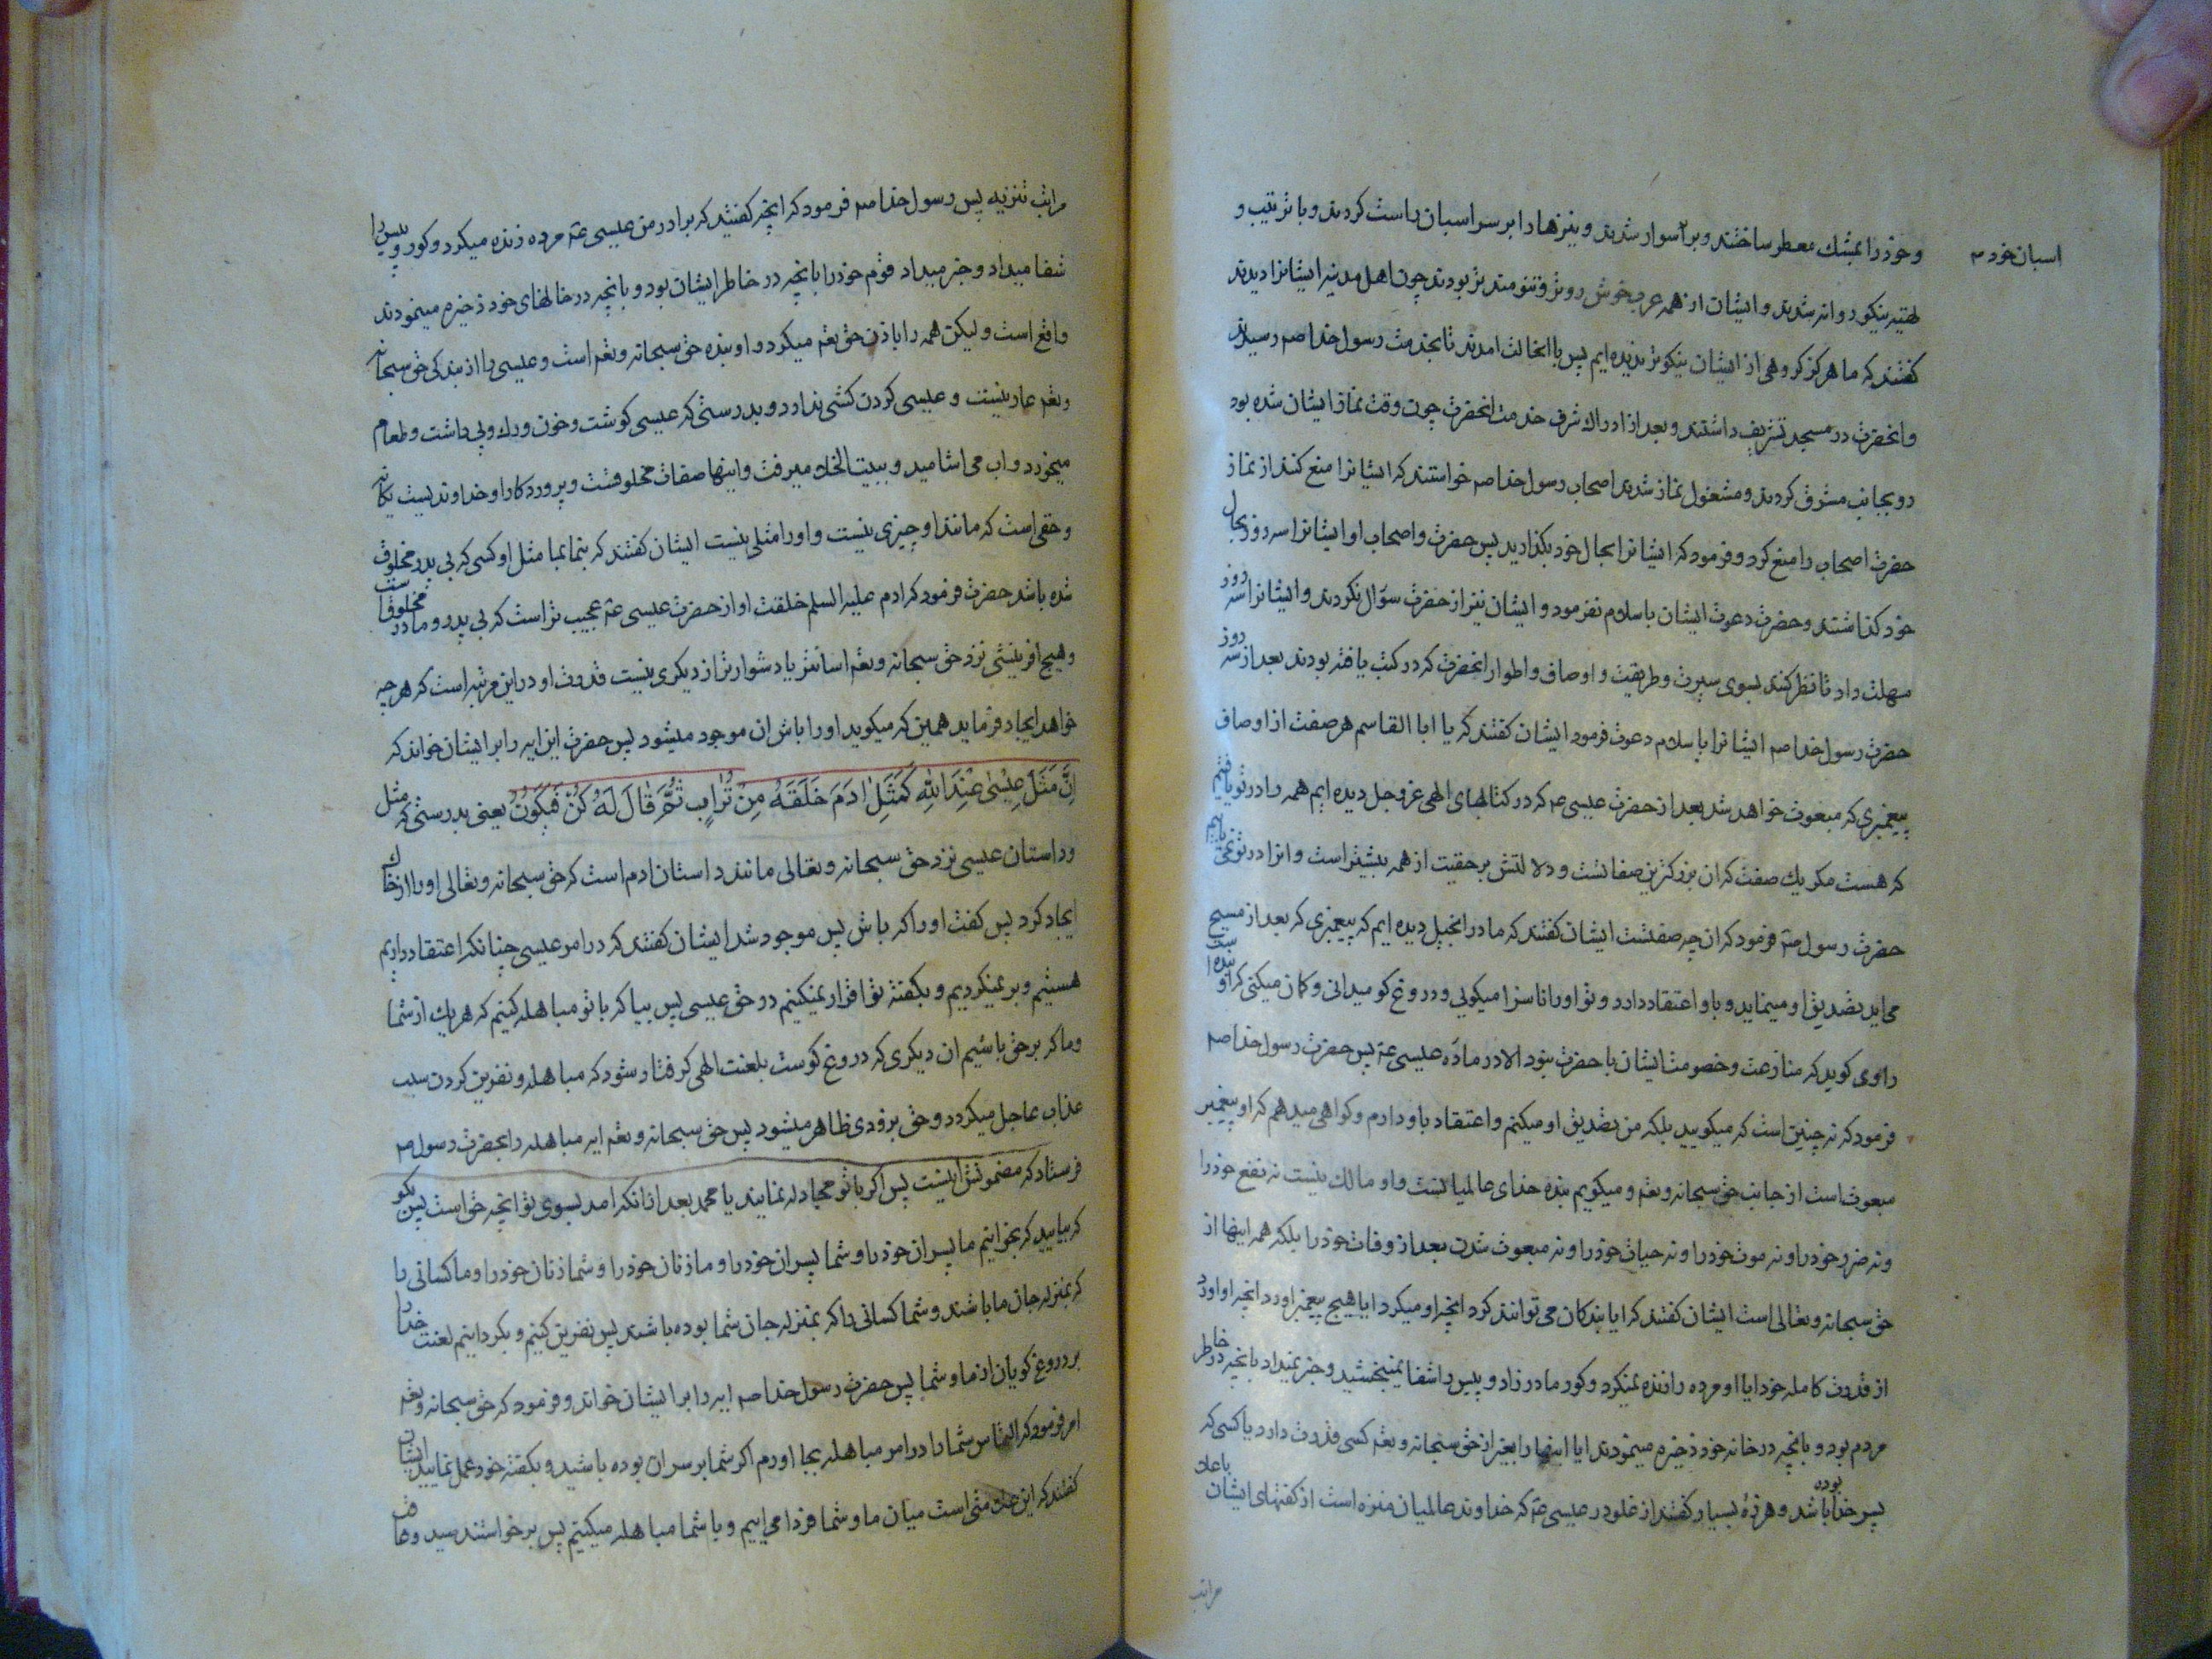 وخود را بمشك معطر ساختند وبر اسوار شدند ونیزها را بر سر اسبان راست کردند وبا ترتیب و
اسبان خود
تهیه نیکو روانه شدند وایشان از همه عرب خوش روتر وتنومند تر بودند چون اهل مدینه ایشانرا دیدند
کفتند که ما هرکز کروهی از ایشان نیکوتر ندیده ایم پس با انحالت امدند تا بخدمت رسول خدا صم رسیدند
وانحضرت در مسجد تشریف داشتند وبعد از ادراك شرف خدمت انحضرت چون وقت نماز ایشان شده بود
رو بجانب مشرق کردند ومشغول نماز شدند اصحاب رسول خدا صم خواستند که ایشانرا منع کنند از نماز
حضرت اصحاب را منع کرد وفرمود که ایشانرا بحال خود بکذارید پس حضرت واصحاب او ایشانرا سه روز بحال
خود کذاشتند وحضرت دعوت ایشان باسلام نفرمود وایشان نیز از حضرت سؤال نکردند وایشانرا سه روز
مهلت داد تا نظر کنند بسوی سیرت وطریقت واوصاف واطوار انحضرت که در کتب یافته بودند بعد از سه روز
حضرت رسول خدا صم ایشانرا باسلام دعوت فرمود ایشان کفتند که یا ابا القاسم هر صفت از اوصاف
پیغمبری که مبعوث خواهد شد بعد از حضرت عیسی عم که در کتابهای الهی عز وجل دیده ایم همه را در تو یافتیم
که هست مکر یك صفت که ان بزرکترین صفاتست ودلالتش بر حقیت از همه بیشتر است وانرا در تو نمی یابیم
حضرت رسول صم فرمود که ان چه صفتست ایشان کفتند که ما در انجیل دیده ایم که پیغمبری که بعد از مسیح
می اید تصدیق او مینماید وباو اعتقاد دارد وتو اورا ناسزا میکوئی ودروغ کو میدانی وکمان میکنی که او بنده است
راوی کوید که منازعت وخصومت ایشان با حضرت نبود الا در ماده عیسی عم پس حضرت رسول خدا صم
فرمود که نه چنین است که میکویید بلکه من تصدیق او میکنم واعتقاد باو دارم وکواهی میدهم که او پیغمبر
مبعوث است از جانب حق سبحانه وتعم ومیکویم بنده خدای عالمیانست واو مالك نیست نه نفع خود را
ونه ضرر خود را ونه موت خود را ونه حیات خود را ونه مبعوث شدن بعد از وفات خود را بلکه همه اینها از
حق سبحانه وتعالی است ایشان کفتند که ایا بندکان می توانند کرد انچه او میکرد ایا هیچ پیغمبر اورد انچه او اورد
از قدرت کامله خود ایا او مرده را زنده نمیکرد وکور مادرزاد وپیس را شفا نمیبخشید وخبر نمیداد بانچه در خاطر
مردم بود وبانچه در خانه خود ذخیره مینمودند ایا اینها را بغیر از حق سبحانه وتعم کسی قدرت دارد یا کسی که
پسر خدا باشد وهرزۀ بسیار کفتند از غلو در عیسی عم که خداوند عالمیان منزه است از کفتهای ایشان باعلی
بوده
مراتب
مراتب تنزیه پس رسول خدا صم فرمود که انچه کفتید که برادر من عیسی عم مرده زنده میکرد وکور وپیس را
شفا میداد وخبر میداد قوم خود را بانچه در خاطر ایشان بود وبانچه در خانهای خود ذخیره مینمودند
واقع است ولیکن همه را باذن حق تعم میکرد واو بنده حق سبحانه وتعم است وعیسی را از بندکی حق سبحانه
وتعم عار نیست وعیسی کردن کشی ندارد وبدرستی که عیسی کوشت وخون ورك وپی داشت وطعام
میخورد واب می اشامید وببیت الخلا میرفت واینها صفات مخلوقست وپروردکار او خداوندیست یکانه
وحقی است که مانند او چیزی نیست واورا مثلی نیست ایشان کفتند که بنما بما مثل او کسی که بی پدر مخلوق
شده باشد حضرت فرمود که ادم علیه السلم خلقت او از حضرت عیسی عم عجیب تر است که بی پدر ومادر مخلوق شد
وهیچ افرینشی نزد حق سبحانه وتعم اسانتر یا دشوارتر از دیکری نیست قدرت او در این مرتبه است که هرچه
خواهد ایجاد فرماید همین که میکوید اورا باش ان موجود میشود پس حضرت این ایه را بر ایشان خواند که
اِنَّ مَثَلَ عِیْسٰی عِنْدَ اللهِ کَمَثَلِ اٰدَمَ خَلَقَهُ مِنْ تُرٰابٍ ثُمَّ قٰالَ لَهُ کُنْ فَیَکُونُ یعنی بدرستی که مثل
وداستان عیسی نزد حق سبحانه وتعالی مانند داستان ادم است که حق سبحانه وتعالی اورا از خاك
ایجاد کرد پس کفت اورا که باش پس موجود شد ایشان کفتند که در امر عیسی چنانکه اعتقاد داریم
هستیم وبر نمیکردیم وبکفته تو اقرار نمیکنیم در حق عیسی پس بیا که با تو مباهله کنیم که هر یك از شما
وما که بر حق باشیم ان دیکری که دروغ کوست بلعنت الهی کرفتار شود که مباهله ونفرین کردن سبب
عذاب عاجل میکردد وحق بزودی ظاهر میشود پس حق سبحانه وتعم ایه مباهله را بحضرت رسول صم
فرستاد که مضمونش اینست پس اکر با تو مجادله نمایند یا محمد بعد از انکه امد بسوی تو انچه حق است پس بکو
که بیایید که بخوانیم ما پسران خود را وشما پسران خود را وما زنان خود را وشما زنان خود را وما کسانی را
که بمنزله جان ما باشند وشما کسانی را که بمنزله جان شما بوده باشند پس نفرین کنیم وبکردانیم لعنت خدا را
بر دروغ کویان از ما وشما پس حضرت رسول خدا صم ایه را بر ایشان خواند وفرمود که حق سبحانه وتعم
امر فرمود که التماس شما را در امر مباهله بجا اورم اکر شما بر سر ان بوده باشید وبکفته خود عمل نمایید ایشان
کفتند که این علامتی است میان ما وشما فردا می اییم وبا شما مباهله میکنیم پس برخواستند سید وعاقب